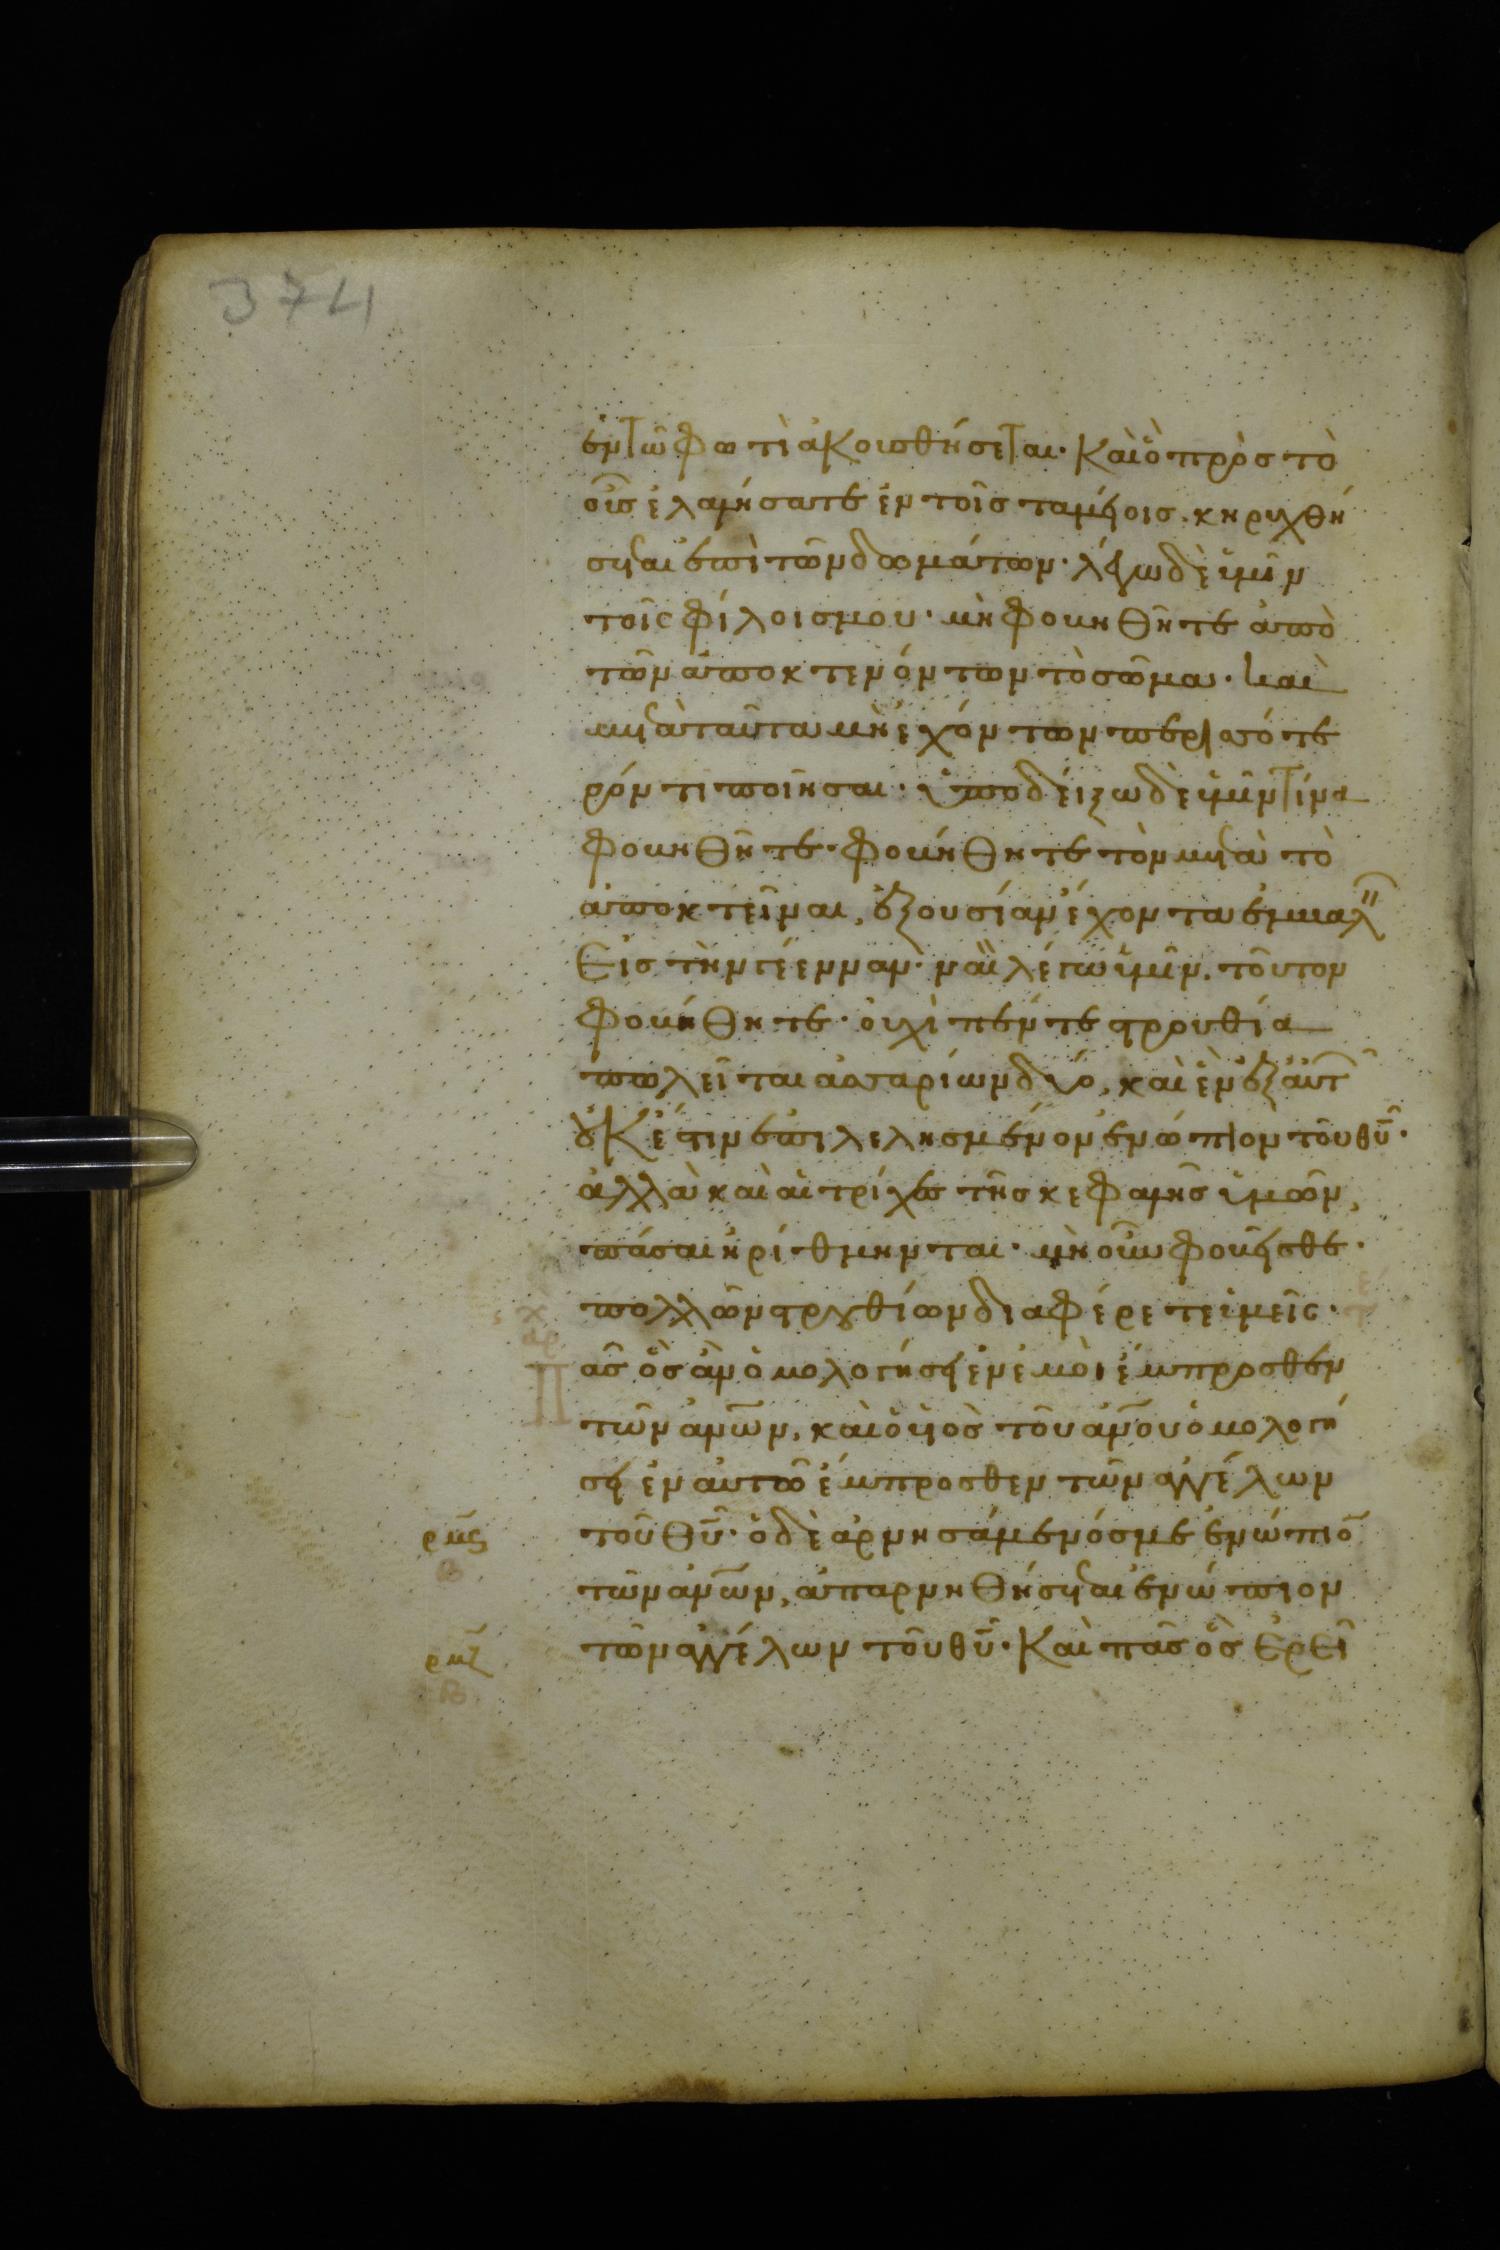 374
ἐν τῶ φωτὶ ἀκουσθήσεται· Καὶ ὃ πρὸς τὸ
οὖς ἐλαλήσατε ἐν τοῖς ταμείοις· κηρυχθή
σεται ἐπὶ τῶν δωμάτων· λέγω δὲ ὑμῖν
τοῖς φίλοις μου· μὴ φοβηθῆτε ἀπὸ
τῶν ἀποκτενόντων τὸ σῶμα· καὶ
μετὰ ταῦτα μὴ ἐχόντων περισσότε
ρόν τι ποιῆσαι· ὑποδείξω δὲ ὑμῖν τίνα
φοβηθῆτε· φοβήθητε τὸν μετὰ τὸ
ἀποκτεῖναι, ἐξουσίαν ἔχοντα ἐμβαλ
Εἰς τὴν γέενναν· ναὶ λέγω ὑμῖν, τοῦτον
φοβήθητε· οὐχὶ πέντε στρουθία
πωλεῖται ἀσσαρίων δύο, καὶ ἓν ἐξ αὐτ
οὐκ ἔστιν ἐπιλελησμένον ἐνώπιον τοῦ θυ·
ἀλλὰ καὶ αἱ τρίχες τῆς κεφαλῆς ὑμῶν,
πάσαι ἠρίθμηνται· μὴ οὖν φοβεῖσθε·
πολλῶν στρουθίων διαφέρετε ὑμεῖς·
Πᾶς ὃς ἂν ὁμολογήσει ἐν ἐμοὶ ἔμπροσθεν
τῶν ανων, καὶ ὁ υἱὸς τοῦ ανου ὁμολογή
σει ἐν αὐτῶ ἔμπροσθεν τῶν ἀγγέλων
ρμς τοῦ θυ· ὁ δὲ ἀρνησάμενός με ἐνώπιον
τῶν ανων, ἀπαρνηθήσεται ἐνώπιον
ρμζ τῶν ἀγγέλων τοῦ θυ· Καὶ πᾶς ὃς Ἐρεῖ